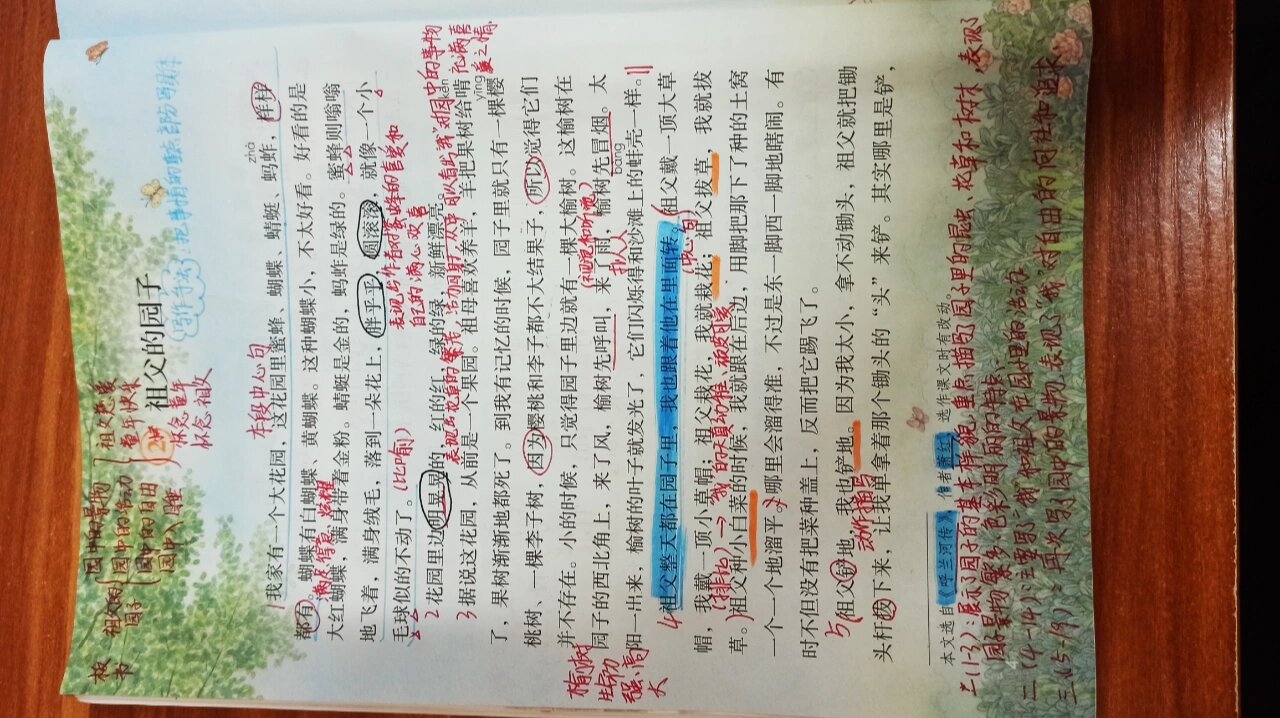 板书
祖父的园子
园中的景物
园中的活动
园中的自由
园中入睡
祖父慈爱
童年快乐
怀念童年
怀念祖父
2 祖父的园子
(写作方法)
把事情的重点部分写具体
本段中心句
zhà
1 我家有一个大花园，这花园里蜜蜂、蝴蝶、蜻蜓、蚂蚱，样样
都有。蝴蝶有白蝴蝶、黄蝴蝶。这种蝴蝶小，不太好看。好看的是
大红蝴蝶，满身带着金粉。蜻蜓是金的，蚂蚱是绿的。蜜蜂则嗡嗡
地飞着，满身绒毛，落到一朵花上，胖乎乎，圆滚滚，就像一个小
毛球似的不动了。(比喻)
表现出作者对蜜蜂的喜爱和
自己的满心欢喜
2 花园里边明晃晃的，红的红，绿的绿，新鲜漂亮。
kěn
3 据说这花园，从前是一个果园。祖母喜欢养羊，羊把果树给啃
yīng
了，果树渐渐地都死了。到我有记忆的时候，园子里就只有一棵樱
桃树、一棵李子树，因为樱桃和李子都不大结果子，所以觉得它们
并不存在。小的时候，只觉得园子里边就有一棵大榆树。这榆树在
园子的西北角上，来了风，榆树先呼叫，来了雨，榆树先冒烟。太
拟人
bàng
阳一出来，榆树的叶子就发光了，它们闪烁得和沙滩上的蚌壳一样。
榆树
生命力
强、高
大
4 祖父整天都在园子里，我也跟着他在里面转。祖父戴一顶大草
帽，我戴一顶小草帽；祖父栽花，我就栽花；祖父拔草，我就拔
草。(排比)祖父种小白菜的时候，我就跟在后边，用脚把那下了种的土窝
一个一个地溜平。哪里会溜得准，不过是东一脚西一脚地瞎闹。有
时不但没有把菜种盖上，反而把它踢飞了。
5 祖父铲地，我也铲地。因为我太小，拿不动锄头，祖父就把锄
动作描写
头杆拔下来，让我单拿着那个锄头的“头”来铲。其实哪里是铲，
本文选自《呼兰河传》，作者萧红，选作课文时有改动。
4
一(1-3)：展示了园子的基本样貌，重点描写了园子里的昆虫、花草和树木，表现
园子景物繁多、色彩明丽的特点。
二(4-14)：主要写“我”和祖父在园中的活动
三(15-19)：再次写园中的景物，表现了“我”对自由的向往和追求